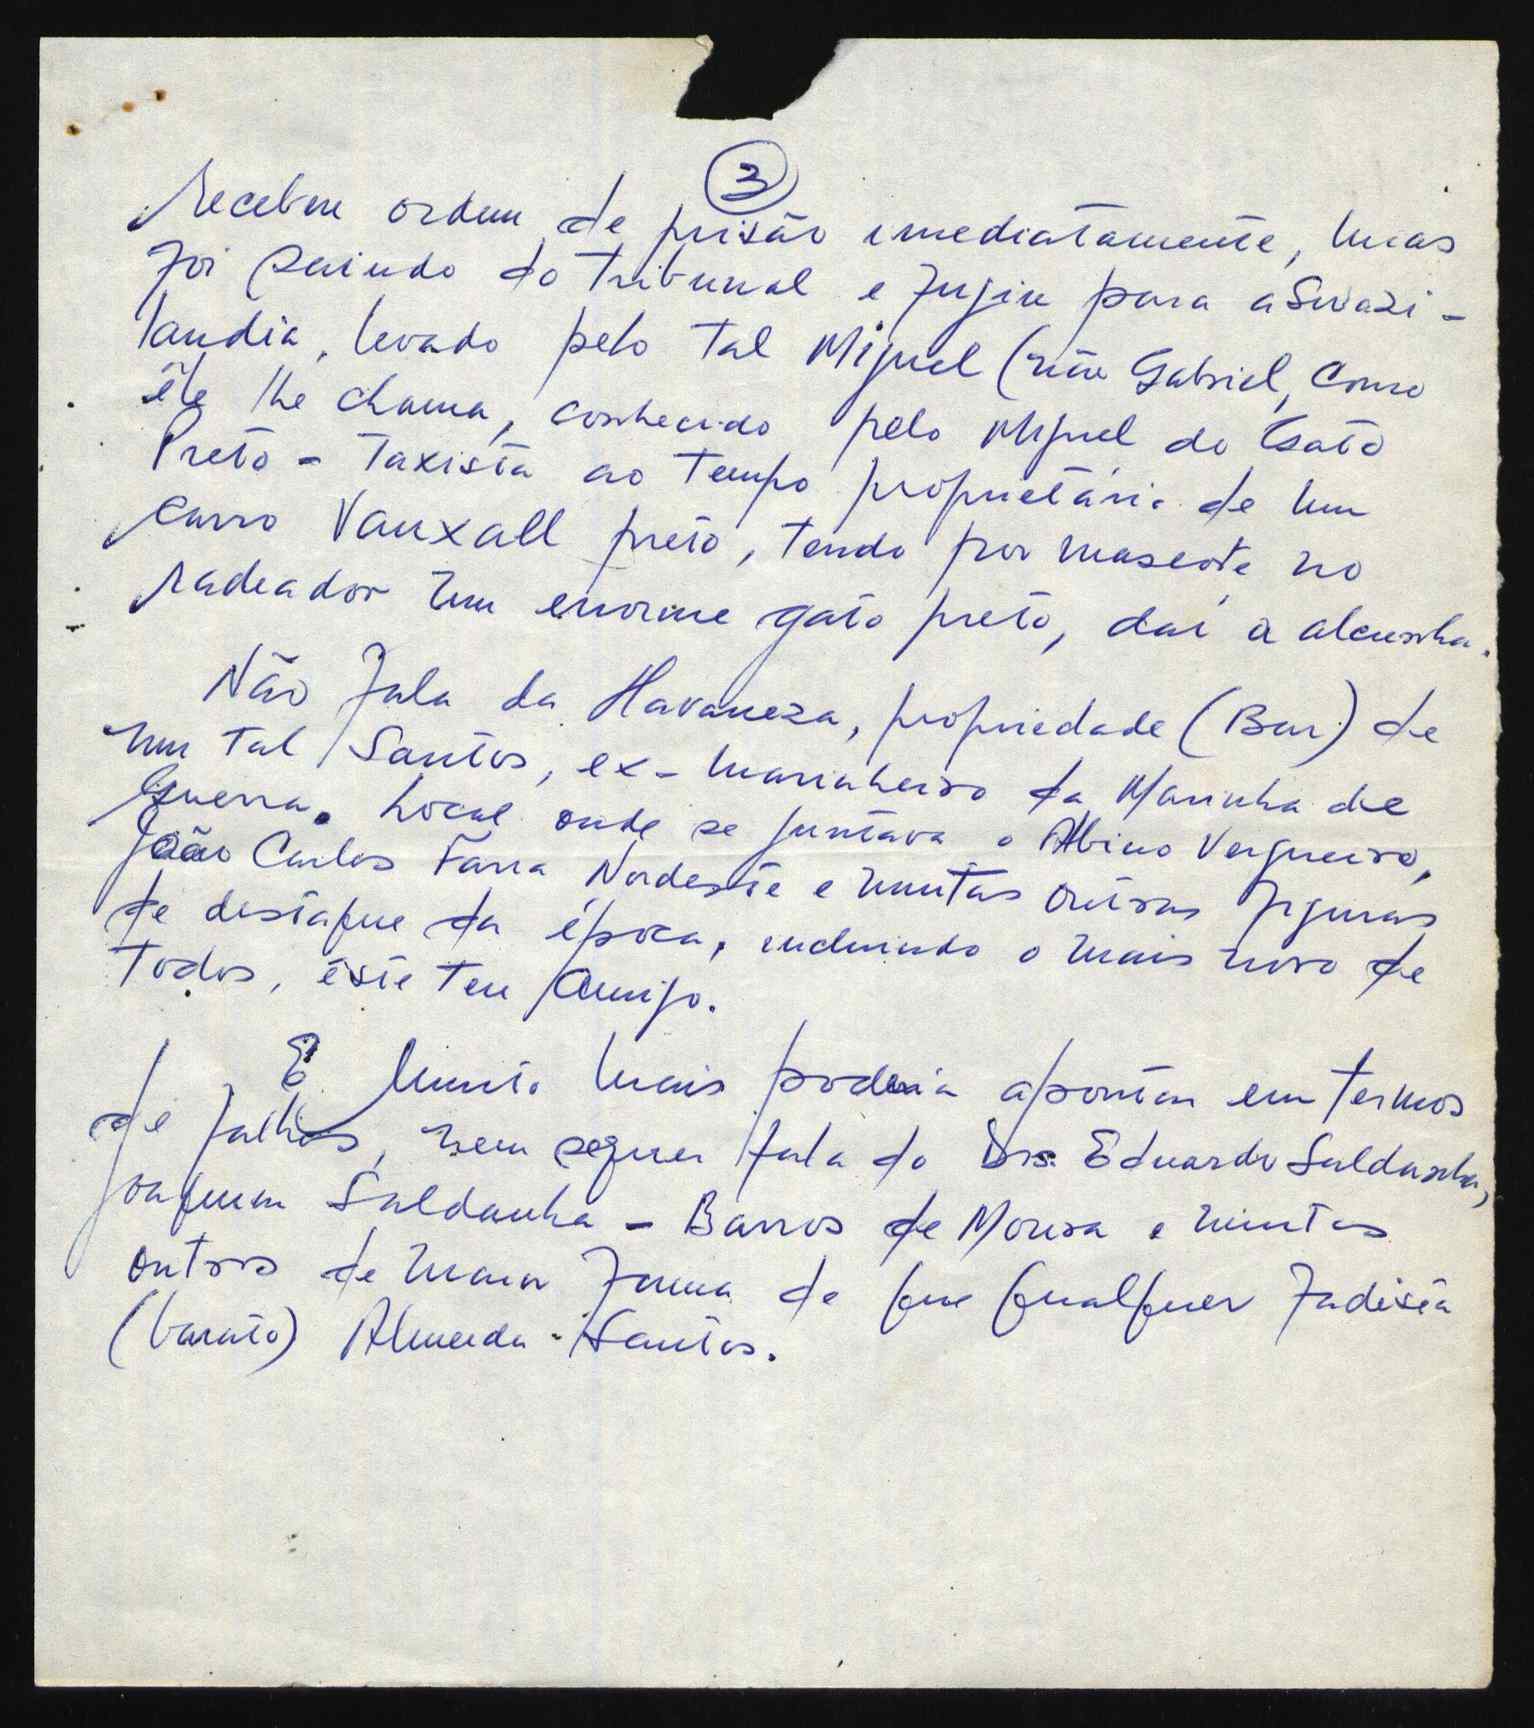 3
recebeu ordem de prisão imediatamente, mas
foi saindo do tribunal e fugiu para a Swazi-
landia, levado pelo tal Miguel (não Gabriel, como
êle lhe chama, conhecido pelo Miguel do Gato
Preto - Taxista ao tempo proprietário de um
carro Vauxall preto, tendo por mascote no
radeador um enorme gato preto, daí a alcunha.
Não fala da Havaneza, propriedade (Bar) de
um tal Santos, ex-marinheiro da Marinha de
Guerra. Local onde se juntava o Albino Vergueiro,
João Carlos Farra Nordeste e muitas outras figuras
de destaque da época, incluindo o mais novo de
todos, êste teu Amigo.
E muito mais poderia apontar em termos
de falhas, nem sequer fala do Drs. Eduardo Saldanha,
Joaquim Saldanha - Barros de Moura e muitos
outros de maior fama do que qualquer fadista
(barato) Almeida Santos.